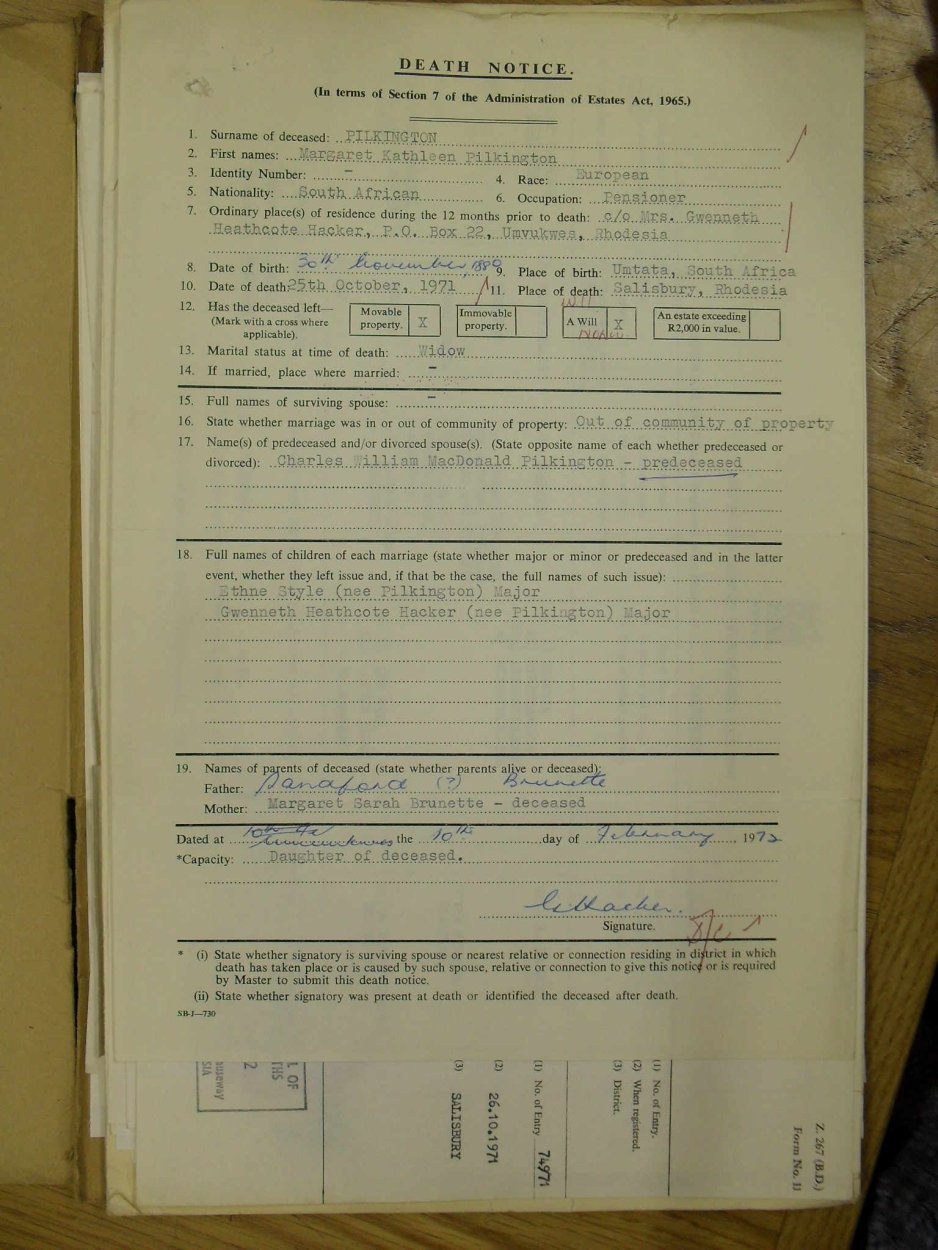 DEATH NOTICE.
(In terms of Section 7 of the Administration of Estates Act, 1965.)
1. Surname of deceased: PILKINGTON
2. First names: Margaret Kathleen Pilkington
3. Identity Number: - 4. Race: European
5. Nationality: South African 6. Occupation: Pensioner
7. Ordinary place(s) of residence during the 12 months prior to death: c/o Mrs. Gwenneth
Heathcote Hacker, P.O. Box 22, Umvukwes, Rhodesia
8. Date of birth: 30th November, 1889 9. Place of birth: Umtata, South Africa
10. Date of death: 25th October, 1971 11. Place of death: Salisbury, Rhodesia
12. Has the deceased left— Movable property. X Immovable property. A Will X An estate exceeding R2,000 in value.
(Mark with a cross where
applicable).
13. Marital status at time of death: Widow
14. If married, place where married: -
15. Full names of surviving spouse: -
16. State whether marriage was in or out of community of property: Out of community of property
17. Name(s) of predeceased and/or divorced spouse(s). (State opposite name of each whether predeceased or
divorced): Charles William MacDonald Pilkington - predeceased
18. Full names of children of each marriage (state whether major or minor or predeceased and in the latter
event, whether they left issue and, if that be the case, the full names of such issue):
Ethne Style (nee Pilkington) Major
Gwenneth Heathcote Hacker (nee Pilkington) Major
19. Names of parents of deceased (state whether parents alive or deceased):
Father: Sandford (?) Brunette
Mother: Margaret Sarah Brunette - deceased
Dated at the 10th day of February 1972
*Capacity: Daughter of deceased.
G Hacker.
Signature.
* (i) State whether signatory is surviving spouse or nearest relative or connection residing in district in which
death has taken place or is caused by such spouse, relative or connection to give this notice or is required
by Master to submit this death notice.
(ii) State whether signatory was present at death or identified the deceased after death.
SB-J—730
Z. 267 (B.D.)
Form No. 11
(1) No. of Entry.
(2) When registered.
(3) District.
(1) No. of Entry 74971
(2) 26.10.1971
(3) SALISBURY